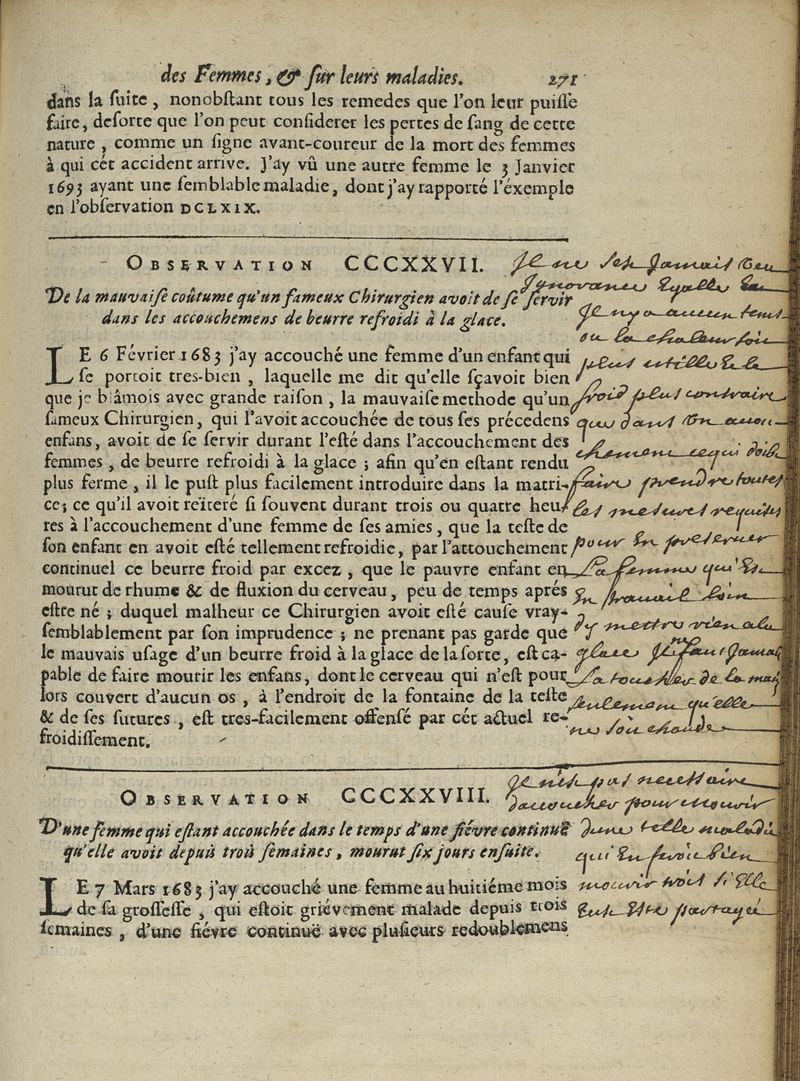 des Femmes, & ſur leurs maladies. 271
dans la ſuite, nonobſtant tous les remedes que l'on leur puiſſe
faire, deſorte que l'on peut conſiderer les pertes de ſang de cette
nature, comme un ſigne avant-coureur de la mort des femmes
à qui cét accident arrive. J'ay vû une autre femme le 3 Janvier
1693 ayant une ſemblable maladie, dont j'ay rapporté l'éxemple
en l'obſervation DCLXIX.
OBSERVATION CCCXXVII.
De la mauvaiſe coûtume qu'un fameux Chirurgien avoit de ſe ſervir
dans les accouchemens de beurre refroidi à la glace.
LE 6 Février 1683 j'ay accouché une femme d'un enfant qui
ſe portoit tres-bien, laquelle me dit qu'elle ſçavoit bien
que je blâmois avec grande raiſon, la mauvaiſe methode qu'un
fameux Chirurgien, qui l'avoit accouchée de tous ſes précedens
enfans, avoit de ſe ſervir durant l'eſté dans l'accouchement des
femmes, de beurre refroidi à la glace; afin qu'en eſtant rendu
plus ferme, il le puſt plus facilement introduire dans la matri-
ce; ce qu'il avoit reïteré ſi ſouvent durant trois ou quatre heu-
res à l'accouchement d'une femme de ſes amies, que la teſte de
ſon enfant en avoit eſté tellement refroidie, par l'attouchement
continuel ce beurre froid par excez, que le pauvre enfant en
mourut de rhume & de fluxion du cerveau, peu de temps aprés
eſtre né; duquel malheur ce Chirurgien avoit eſté cauſe vray-
ſemblablement par ſon imprudence; ne prenant pas garde que
le mauvais uſage d'un beurre froid à la glace de la ſorte, eſt ca-
pable de faire mourir les enfans, dont le cerveau qui n'eſt pour
lors couvert d'aucun os, à l'endroit de la fontaine de la teſte
& de ſes ſutures, eſt tres-facilement offenſé par cét actuel re-
froidiſſement.
Il ne ſeſt Jamais veu
Il ny a aucun tems
ou la chaleur ſoit
plus utille & le
froid plus contraire
que dans un acou-
chement ce qui doit
faire prendre toutes
les meſures requiſes
pour En preſerver
La femme qui Eſt
En travail loin
dy mettre rien a la
glace Il ne faut Jamais
La toucher de la main
ſeulement qu'elle
ne ſoit chaude
OBSERVATION CCCXXVIII.
D'une femme qui eſtant accouchée dans le temps d'une fiévre continuë
qu'elle avoit depuis trois ſemaines, mourut ſix jours enſuite.
LE 7 Mars 1683 j'ay accouché une femme au huitiéme mois
de ſa groſſeſſe, qui eſtoit griévement malade depuis trois
ſemaines, d'une fiévre continuë avec pluſieurs redoublemens
Il neſt pas neceſſaire
daccoucher pour mourir
dune telle maladie
qui En feroit bien
mourir trois ſ'Elle
Eut Eſté partagée